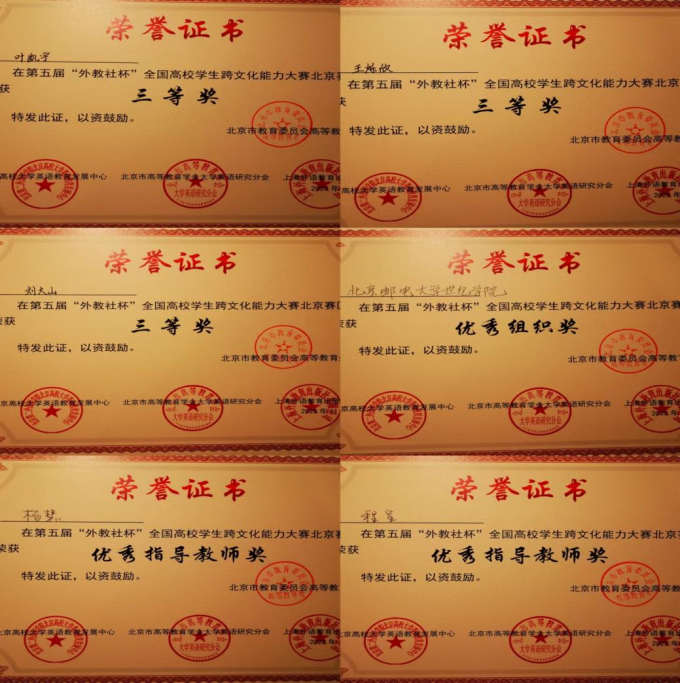 荣誉证书
叶凯宇
在第五届“外教社杯”全国高校学生跨文化能力大赛北京赛
获
三等奖
特发此证，以资鼓励。
北京市教育委员会高等教
高校大学英语教育发展中心
北京市高等教育学会大学英语研究分会
上海外语教育出版
荣誉证书
在第五届“外教社杯”全国高校学生跨文化能力大赛北京
获
三等奖
特发此证，以资鼓励。
北京市教育委员会高等教
高校大学英语教育发展中心
北京市高等教育学会大学英语研究分会
上海外语教育出版
荣誉证书
刘大山
在第五届“外教社杯”全国高校学生跨文化能力大赛北京赛区
荣获
三等奖
特发此证，以资鼓励。
北京市教育委员会高等教育
京高校大学英语教育发展中心
北京市高等教育学会大学英语研究分会
上海外语教育出版
荣誉证书
北京邮电大学世纪学院
在第五届“外教社杯”全国高校学生跨文化能力大赛北京赛
获
优秀组织奖
特发此证，以资鼓励。
北京市教育委员会高等教
高校大学英语教育发展中心
北京市高等教育学会大学英语研究分会
上海外语教育出版
荣誉证书
杨慧
在第五届“外教社杯”全国高校学生跨文化能力大赛北京赛
荣获
优秀指导教师奖
特发此证，以资鼓励。
北京市教育委员会高等教
京高校大学英语教育发展中心
北京市高等教育学会大学英语研究分会
上海外语教育出版
荣誉证书
程星
在第五届“外教社杯”全国高校学生跨文化能力大赛北京赛
荣获
优秀指导教师奖
特发此证，以资鼓励。
北京市教育委员会高等教
京高校大学英语教育发展中心
北京市高等教育学会大学英语研究分会
上海外语教育出版